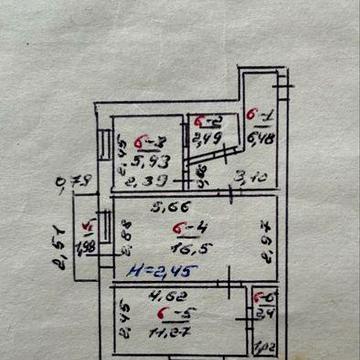 6-1
6,48
6-2
2,49
6-3
5,93
2,45
2,39
0,86
3,10
0,79
5,66
6-4
16,5
2,88
2,97
2,51
1,98
H=2,45
4,62
6-5
11,27
2,45
6-6
2,4
1,02